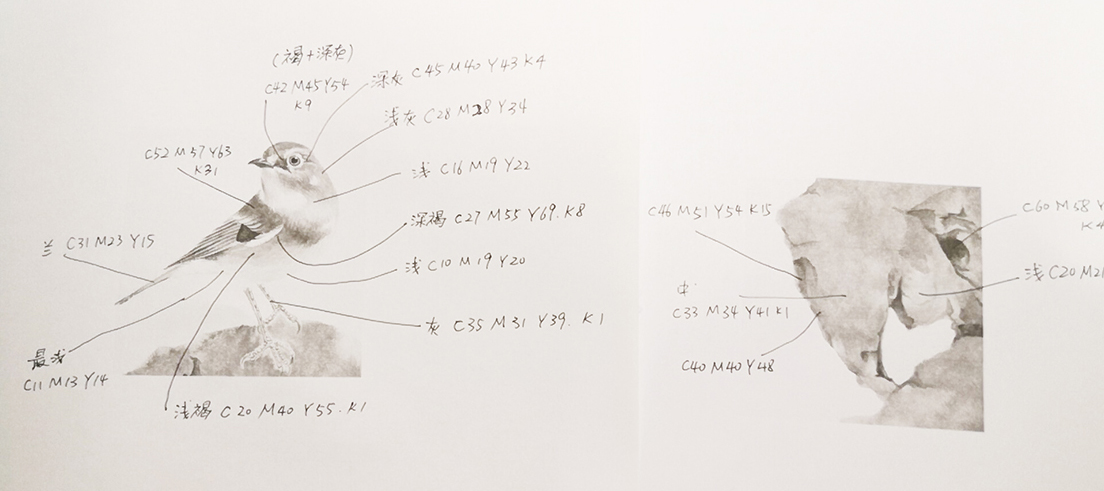 (褐+深灰)
C42 M45 Y54
K9
深灰 C45 M40 Y43 K4
浅灰 C28 M28 Y34
C52 M57 Y63
K31
浅 C16 M19 Y22
深褐 C27 M55 Y69. K8
兰 C31 M23 Y15
浅 C10 M19 Y20
灰 C35 M31 Y39. K1
最浅
C11 M13 Y14
浅褐 C20 M40 Y55. K1
C46 M51 Y54 K15
C60 M58 Y
K4
中
C33 M34 Y41 K1
浅 C20 M21
C40 M40 Y48